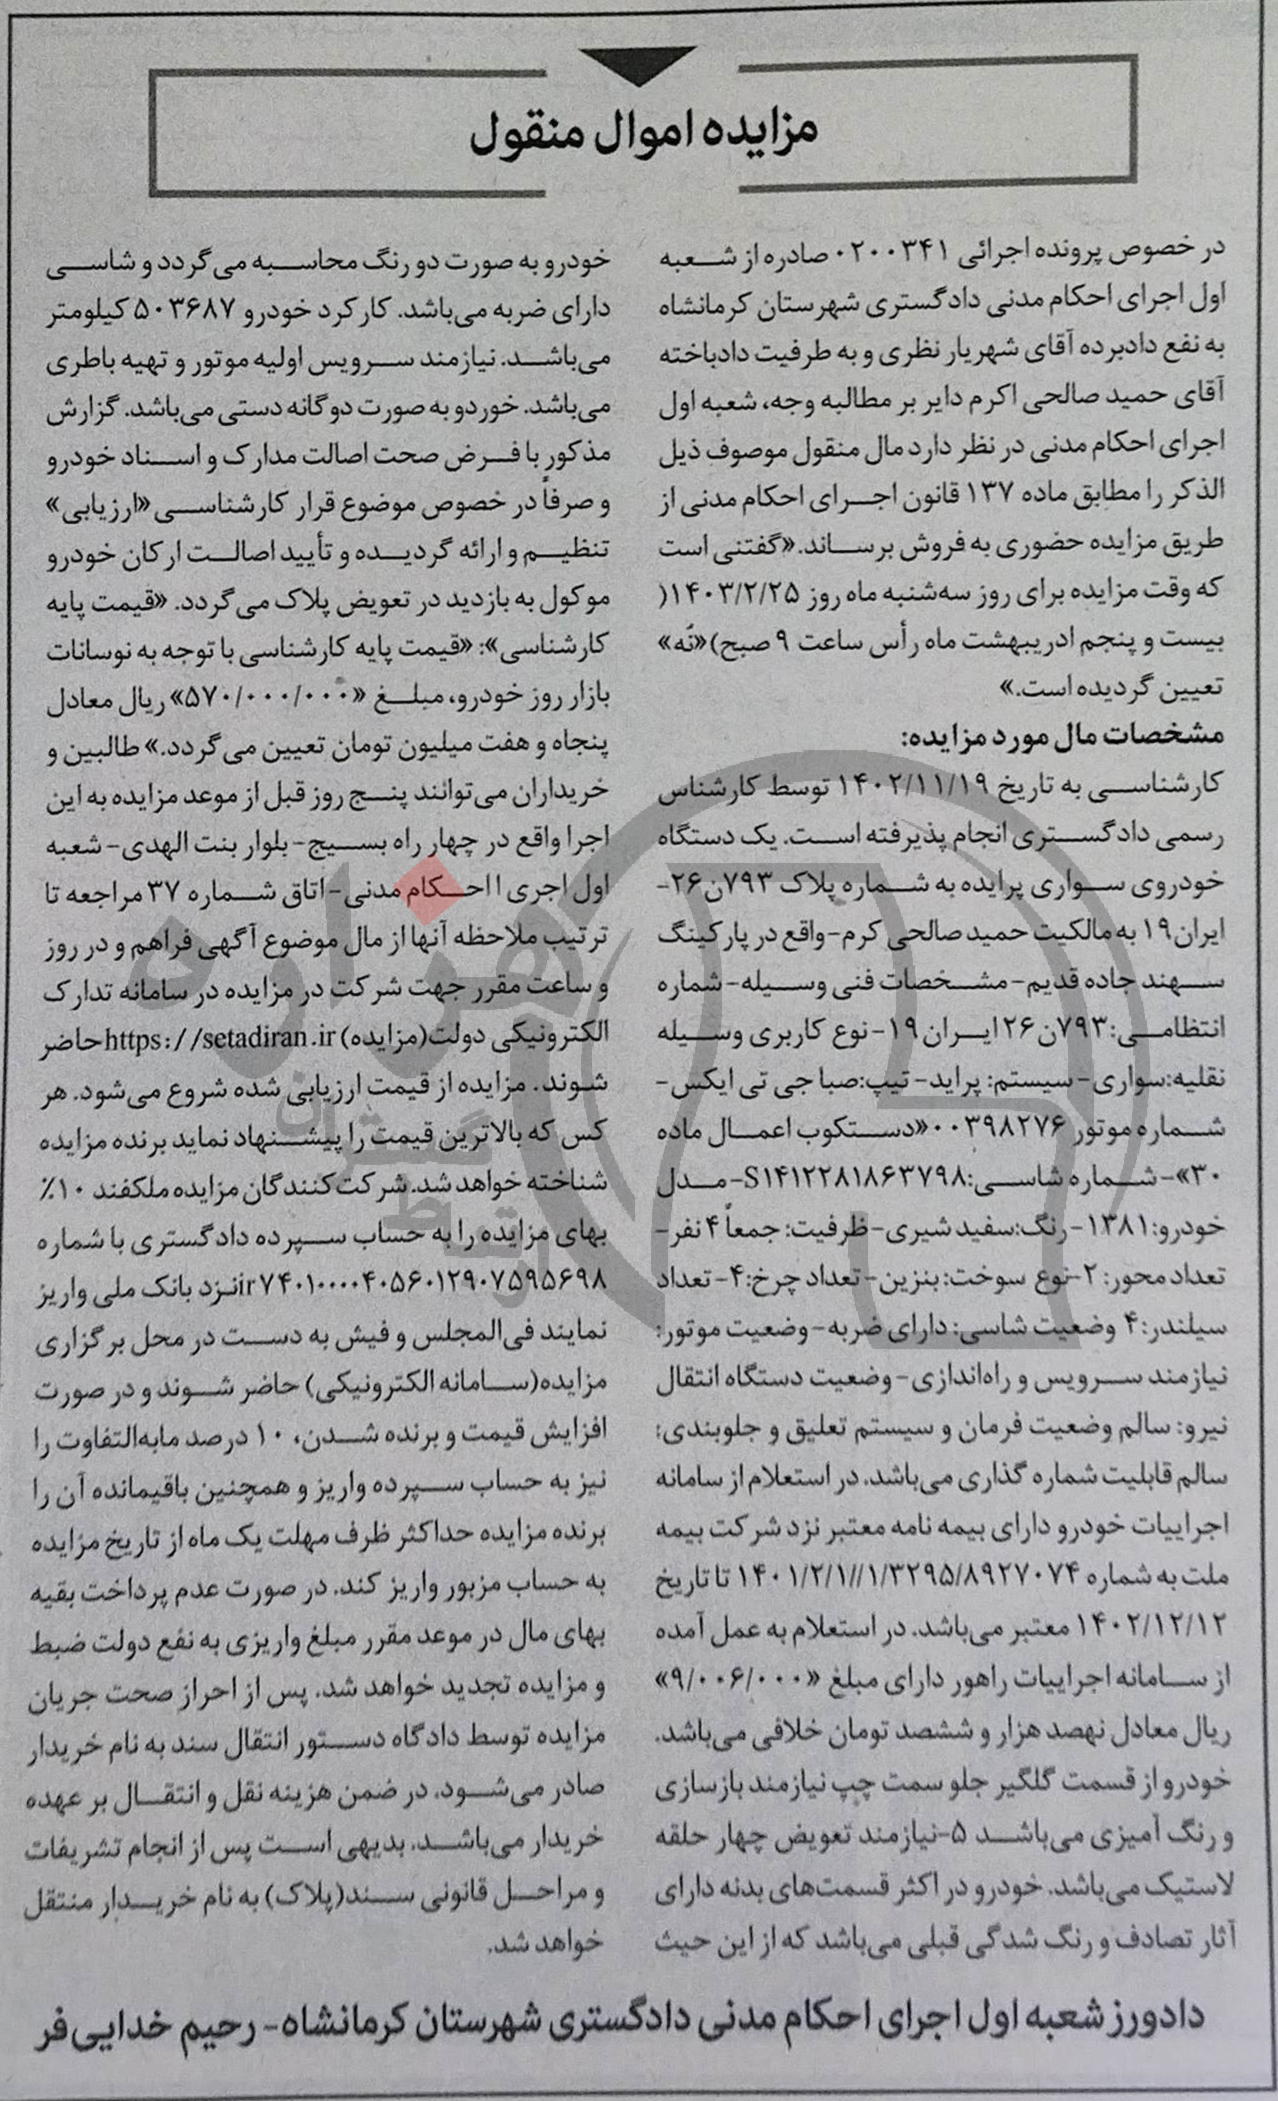 مزایده اموال منقول
در خصوص پرونده اجرائی ۰۲۰۰۳۴۱ صادره از شعبه
اول اجرای احکام مدنی دادگستری شهرستان کرمانشاه
به نفع دادبرده آقای شهریار نظری و به طرفیت دادباخته
آقای حمید صالحی اکرم دایر بر مطالبه وجه، شعبه اول
اجرای احکام مدنی در نظر دارد مال منقول موصوف ذیل
الذکر را مطابق ماده ۱۳۷ قانون اجرای احکام مدنی از
طریق مزایده حضوری به فروش برساند. «گفتنی است
که وقت مزایده برای روز سه‌شنبه ماه روز ۱۴۰۳/۲/۲۵(
بیست و پنجم ادریبهشت ماه رأس ساعت ۹ صبح) «نُه»
تعیین گردیده است.»
مشخصات مال مورد مزایده:
کارشناسی به تاریخ ۱۴۰۲/۱۱/۱۹ توسط کارشناس
رسمی دادگستری انجام پذیرفته است. یک دستگاه
خودروی سواری پرایده به شماره پلاک ۷۹۳ن۲۶-
ایران۱۹ به مالکیت حمید صالحی کرم-واقع در پارکینگ
سهند جاده قدیم- مشخصات فنی وسیله- شماره
انتظامی: ۷۹۳ن۲۶ ایران ۱۹- نوع کاربری وسیله
نقلیه:سواری- سیستم: پراید- تیپ:صبا جی تی ایکس-
شماره موتور ۰۰۳۹۸۲۷۶«دستکوب اعمال ماده
۳۰»- شماره شاسی:S۱۴۱۲۲۸۱۸۶۳۷۹۸- مدل
خودرو:۱۳۸۱- رنگ:سفید شیری- ظرفیت: جمعاً ۴ نفر-
تعداد محور: ۲-نوع سوخت: بنزین- تعداد چرخ:۴- تعداد
سیلندر:۴ وضعیت شاسی: دارای ضربه- وضعیت موتور:
نیازمند سرویس و راه‌اندازی- وضعیت دستگاه انتقال
نیرو: سالم وضعیت فرمان و سیستم تعلیق و جلوبندی:
سالم قابلیت شماره گذاری می‌باشد. در استعلام از سامانه
اجراییات خودرو دارای بیمه نامه معتبر نزد شرکت بیمه
ملت به شماره ۱۴۰۱/۲/۱//۱/۳۲۹۵/۸۹۲۷۰۷۴ تا تاریخ
۱۴۰۲/۱۲/۱۲ معتبر می‌باشد. در استعلام به عمل آمده
از سامانه اجراییات راهور دارای مبلغ «۹/۰۰۶/۰۰۰»
ریال معادل نهصد هزار و ششصد تومان خلافی می‌باشد.
خودرو از قسمت گلگیر جلو سمت چپ نیازمند بازسازی
و رنگ آمیزی می‌باشد ۵-نیازمند تعویض چهار حلقه
لاستیک می‌باشد. خودرو در اکثر قسمت‌های بدنه دارای
آثار تصادف و رنگ شدگی قبلی می‌باشد که از این حیث
خودرو به صورت دو رنگ محاسبه می‌گردد و شاسی
دارای ضربه می‌باشد. کارکرد خودرو ۵۰۳۶۸۷ کیلومتر
می‌باشد. نیازمند سرویس اولیه موتور و تهیه باطری
می‌باشد. خوردو به صورت دوگانه دستی می‌باشد. گزارش
مذکور با فرض صحت اصالت مدارک و اسناد خودرو
و صرفاً در خصوص موضوع قرار کارشناسی «ارزیابی»
تنظیم و ارائه گردیده و تأیید اصالت ارکان خودرو
موکول به بازدید در تعویض پلاک می‌گردد. «قیمت پایه
کارشناسی»: «قیمت پایه کارشناسی با توجه به نوسانات
بازار روز خودرو، مبلغ «۵۷۰/۰۰۰/۰۰۰» ریال معادل
پنجاه و هفت میلیون تومان تعیین می‌گردد.» طالبین و
خریداران می‌توانند پنج روز قبل از موعد مزایده به این
اجرا واقع در چهار راه بسیج- بلوار بنت الهدی- شعبه
اول اجری ا احکام مدنی- اتاق شماره ۳۷ مراجعه تا
ترتیب ملاحظه آنها از مال موضوع آگهی فراهم و در روز
و ساعت مقرر جهت شرکت در مزایده در سامانه تدارک
الکترونیکی دولت(مزایده) https://setadiran.ir حاضر
شوند. مزایده از قیمت ارزیابی شده شروع می‌شود. هر
کس که بالاترین قیمت را پیشنهاد نماید برنده مزایده
شناخته خواهد شد. شرکت‌کنندگان مزایده ملکفند ۱۰٪
بهای مزایده را به حساب سپرده دادگستری با شماره
ir۷۴۰۱۰۰۰۰۴۰۵۶۰۱۲۹۰۷۵۹۵۶۹۸ نزد بانک ملی واریز
نمایند فی‌المجلس و فیش به دست در محل برگزاری
مزایده(سامانه الکترونیکی) حاضر شوند و در صورت
افزایش قیمت و برنده شدن، ۱۰ درصد مابه‌التفاوت را
نیز به حساب سپرده واریز و همچنین باقیمانده آن را
برنده مزایده حداکثر ظرف مهلت یک ماه از تاریخ مزایده
به حساب مزبور واریز کند. در صورت عدم پرداخت بقیه
بهای مال در موعد مقرر مبلغ واریزی به نفع دولت ضبط
و مزایده تجدید خواهد شد. پس از احراز صحت جریان
مزایده توسط دادگاه دستور انتقال سند به نام خریدار
صادر می‌شود. در ضمن هزینه نقل و انتقال بر عهده
خریدار می‌باشد. بدیهی است پس از انجام تشریفات
و مراحل قانونی سند(پلاک) به نام خریدار منتقل
خواهد شد.
دادورز شعبه اول اجرای احکام مدنی دادگستری شهرستان کرمانشاه- رحیم خدایی‌فر